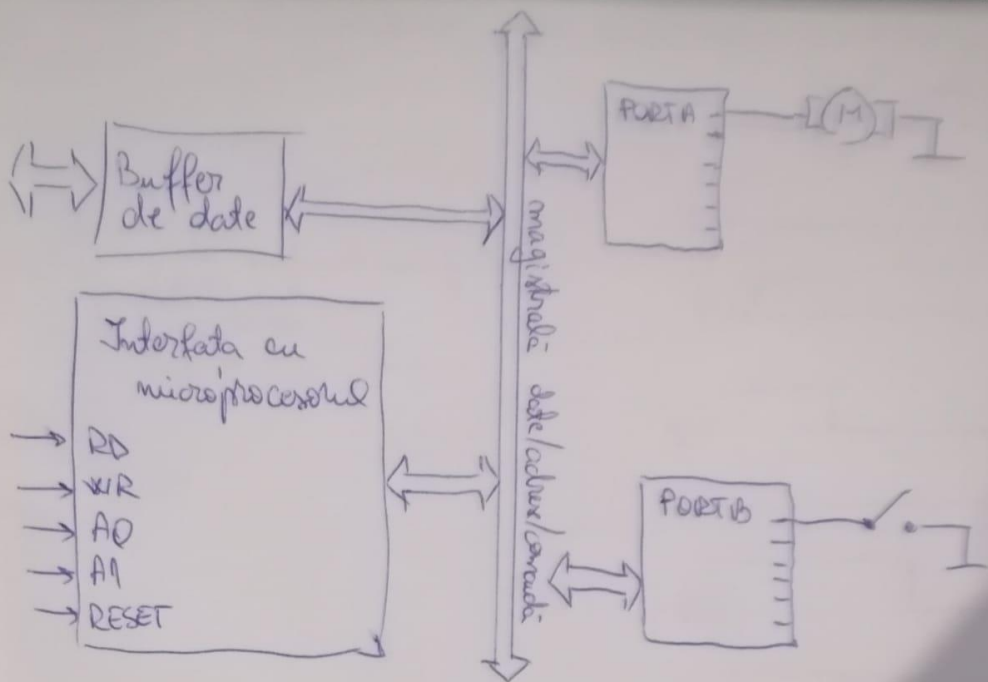 Buffer
de date
Interfata cu
microprocesorul
RD
WR
A0
A1
RESET
magistrală date/adrese/comandă
PORTA
M
PORTB